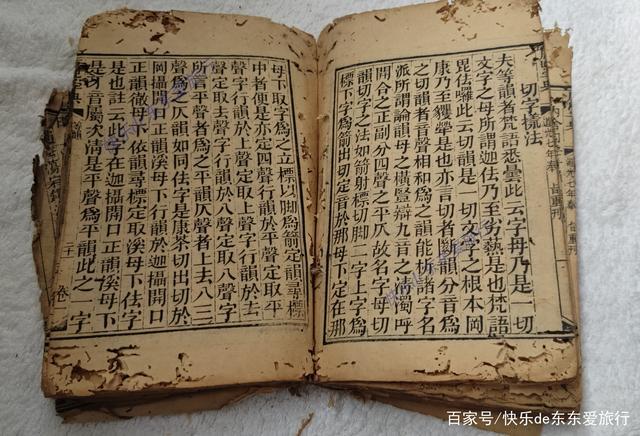 切字樣法
夫等韻者梵語悉曇此云字母乃是一切
文字之母所謂迦佉乃至劣藝是也梵語
毘佉囉此云切韻是一切文字之根本岡
康乃至是也亦言切者斷韻分音爲
之切韻者音聲相和爲之韻能析諸字名
派所謂論韻母之橫豎辯九音之清濁呼
開合之正副分四聲之平仄故名字母切
韻切字之法如箭射標切二字上字爲
標下字爲箭出切定音於那母下定在那
母下取字爲之立標以脚爲箭定韻尋標
中者便是亦定四聲行韻於平聲定取平
聲字行韻於上聲定取上聲字行韻於去
聲定取去聲字行韻於入聲定取入聲字
所言平聲者爲之平韻仄聲者上去入三
聲爲之仄韻如同佉字是康茶切出切於
岡攝開口正韻溪母下行韻於迦攝開口
正韻徹母下依韻尋標定取溪母下佉字
是也註云此字在迦攝開口正韻溪母下
是牙音屬次清是平聲爲平韻此之一字
卷
百家号/快乐de东东爱旅行